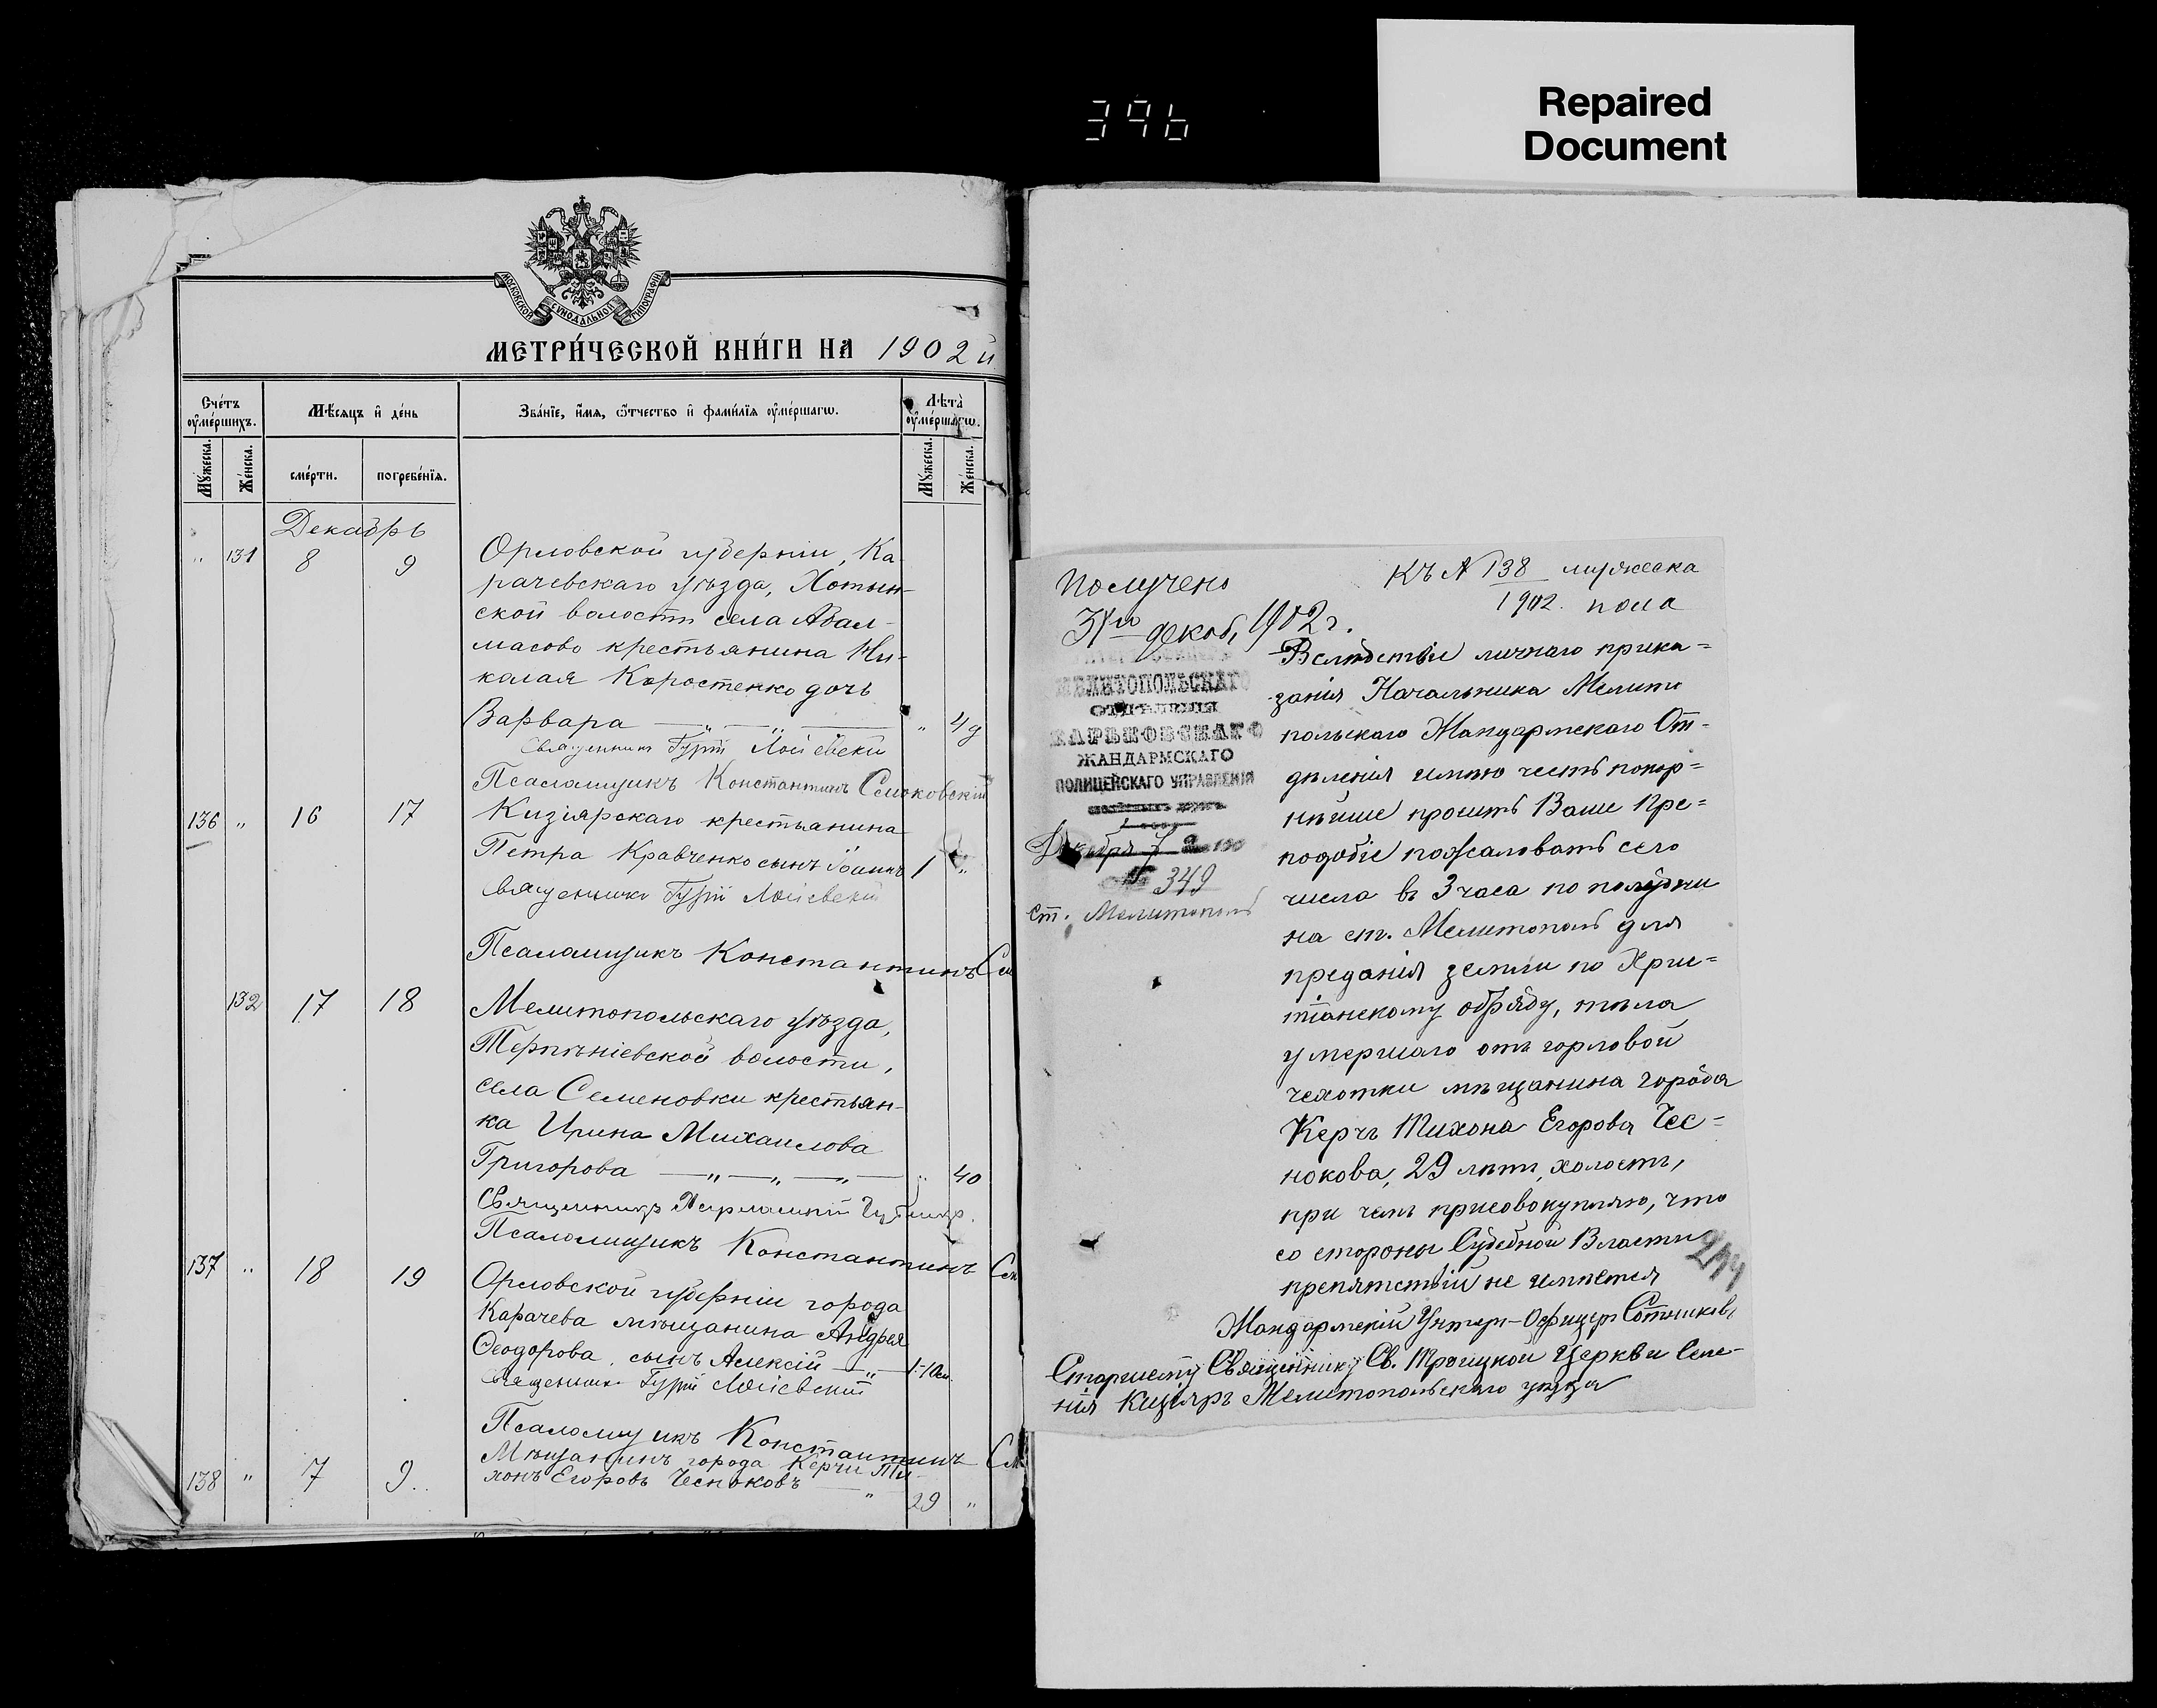 396
Repaired
Document
МОСКОВСКОЙ СѴНОДАЛЬНОЙ ТИПОГРАФІИ
МЕТРИ́ЧЕСКОЙ КНИ́ГИ НА 1902 й
Счéтъ ᲂу҆мéршихъ.
Мѣ́сяцъ и҆ дéнь
Звáнїе, и҆́мя, ѻ҆́тчество и҆ фами́лїя ᲂу҆мéршагѡ.
Лѣ́та ᲂу҆мéршагѡ.
Мꙋ́жеска.
Жéнска.
смéрти.
погребéнїя.
Мꙋ́жеска.
Жéнска.
Декабрь
" 131 8 9 Орловской губерніи, Ка-
рачевскаго уѣзда, Хотын-
ской волости села
масово крестьянина Ни-
колая Коростенко дочь
Варвара — " — " — " 4 д
Священникъ Гурій Лойевскій
Псаломщикъ Константинъ
136 " 16 17 Кизіярскаго крестьянина
Петра Кравченко сынъ Іоаннъ 1 "
Священникъ Гурій Лойевскій
Псаломщикъ Константинъ См
132 17 18 Мелитопольскаго уѣзда,
Терпѣніевской волости,
села Семеновки крестьян-
ка Ирина Михаилова
Григорова — " — " — " — " 40
Священникъ
Псаломщикъ Константинъ См
137 " 18 19 Орловской губерніи города
Карачева мѣщанина Андрея
Ѳеодорова, сынъ Алексій — " —
Священникъ Гурій Лойевскій
Псаломщикъ Константинъ См
138 " 7 9 Мѣщанинъ города Керчи Ти-
хонъ Егоровъ Чесноковъ — " 29 "
Получено
декаб. 1902 г.
Къ № 138 мужеска
1902. пола
МЕЛИТОПОЛЬСКАГО
ОТДѢЛЕНІЯ
ХАРЬКОВСКАГО
ЖАНДАРМСКАГО
ПОЛИЦЕЙСКАГО УПРАВЛЕНІЯ
желѣзныхъ дорогъ.
Декабря 7 190
№ 349
ст. Мелитополь
Вслѣдствіе личнаго прика=
занія Начальника Мелито
польскаго Жандармскаго От-
дѣленія имѣю честь покор=
нѣише просить Ваше Пре=
подобіе пожаловать сего
числа въ 3 часа по полудни
на ст. Мелитополь для
преданія земли по Хрис=
тіанскому обряду, тѣла
умершаго отъ горловой
чехотки мѣщанина города
Керчъ Тихона Егорова Чес=
нокова, 29 лѣтъ, холостъ,
при чемъ присовокупляю, что
со стороны Судебной Власти
препятствій не имѣется
244
Жандармскій Унтеръ-Офицеръ Сотниковъ
Старшему Священнику Св. Троицкой Церкви Селе-
нія Кизіяръ Мелитопольскаго уѣзда